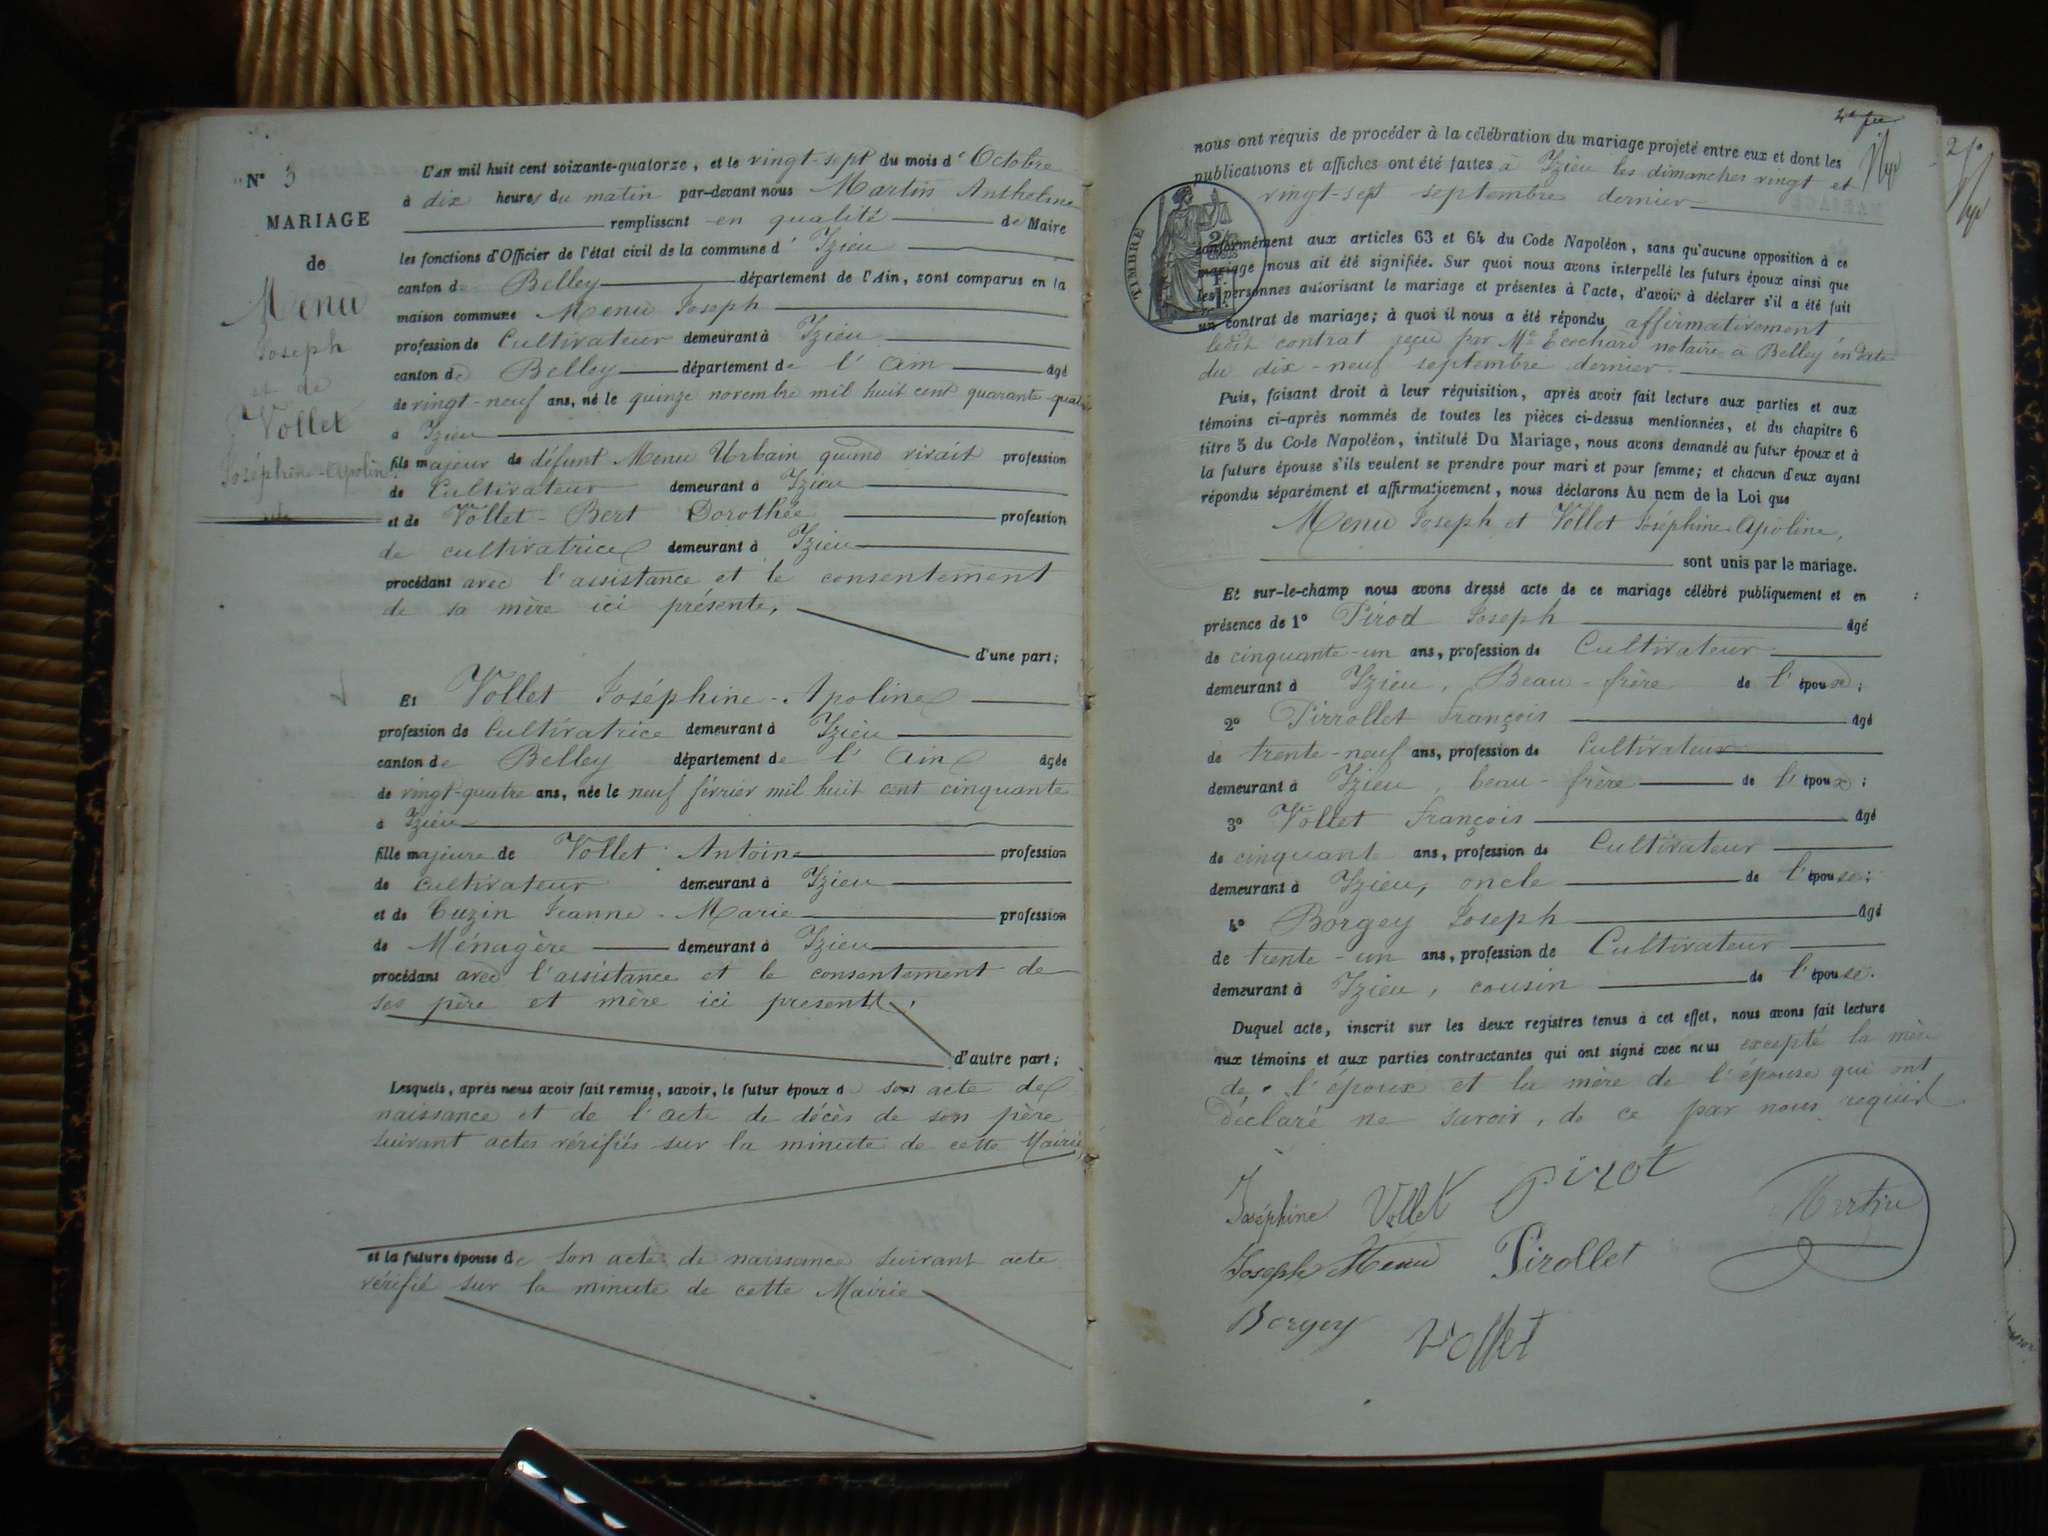 N° 3
MARIAGE
de
Menu
Joseph
et de
Vollet
Joséphine-Apoline
L'AN mil huit cent soixante-quatorze, et le vingt-sept du mois d'Octobre
à dix heures du matin par-devant nous Martin Anthelme
remplissant en qualité de Maire
les fonctions d'Officier de l'état civil de la commune d'Izieu
canton de Belley département de l'Ain, sont comparus en la
maison commune Menu Joseph
profession de Cultivateur demeurant à Izieu
canton de Belley département de l'Ain âgé
de vingt-neuf ans, né le quinze novembre mil huit cent quarante-quatre
à Izieu
fils majeur de défunt Menu Urbain quand vivait profession
de Cultivateur demeurant à Izieu
et de Vollet-Bert Dorothée profession
de cultivatrice demeurant à Izieu
procédant avec l'assistance et le consentement
de sa mère ici présente,
d'une part;
Et Vollet Joséphine-Apoline
profession de Cultivatrice demeurant à Izieu
canton de Belley département de l'Ain âgée
de vingt-quatre ans, née le neuf février mil huit cent cinquante
à Izieu
fille majeure de Vollet Antoine profession
de cultivateur demeurant à Izieu
et de Cuzin Jeanne-Marie profession
de Ménagère demeurant à Izieu
procédant avec l'assistance et le consentement de
ses père et mère ici présents,
d'autre part;
Lesquels, après nous avoir fait remise, savoir, le futur époux de son acte de
naissance et de l'acte de décès de son père
suivant actes vérifiés sur la minute de cette Mairie,
et la future épouse de son acte de naissance suivant acte
vérifié sur la minute de cette Mairie
nous ont requis de procéder à la célébration du mariage projeté entre eux et dont les
publications et affiches ont été faites à Izieu les dimanches vingt et
vingt-sept septembre dernier
TIMBRE
conformément aux articles 63 et 64 du Code Napoléon, sans qu'aucune opposition à ce
mariage nous ait été signifiée. Sur quoi nous avons interpellé les futurs époux ainsi que
les personnes autorisant le mariage et présentes à l'acte, d'avoir à déclarer s'il a été fait
un contrat de mariage; à quoi il nous a été répondu affirmativement
ledit contrat reçu par Me notaire à Belley en date
du dix-neuf septembre dernier.
Puis, faisant droit à leur réquisition, après avoir fait lecture aux parties et aux
témoins ci-après nommés de toutes les pièces ci-dessus mentionnées, et du chapitre 6
titre 5 du Code Napoléon, intitulé Du Mariage, nous avons demandé au futur époux et à
la future épouse s'ils veulent se prendre pour mari et pour femme; et chacun d'eux ayant
répondu séparément et affirmativement, nous déclarons Au nom de la Loi que
Menu Joseph et Vollet Joséphine-Apoline,
sont unis par le mariage.
Et sur-le-champ nous avons dressé acte de ce mariage célébré publiquement et en
présence de 1° Pirod Joseph âgé
de cinquante-un ans, profession de Cultivateur
demeurant à Izieu, Beau-frère de l'époux;
2° Pirrollet François âgé
de trente-neuf ans, profession de Cultivateur
demeurant à Izieu, beau-frère de l'époux;
3° Vollet François âgé
de cinquante ans, profession de Cultivateur
demeurant à Izieu, oncle de l'épouse;
4° Borgey Joseph âgé
de trente-un ans, profession de Cultivateur
demeurant à Izieu, cousin de l'épouse.
Duquel acte, inscrit sur les deux registres tenus à cet effet, nous avons fait lecture
aux témoins et aux parties contractantes qui ont signé avec nous excepté la mère
de l'époux et la mère de l'épouse qui ont
déclaré ne savoir, de ce par nous requis
Joséphine Vollet Pirot
Martin
Joseph Menu Pirollet
Borgey Vollet